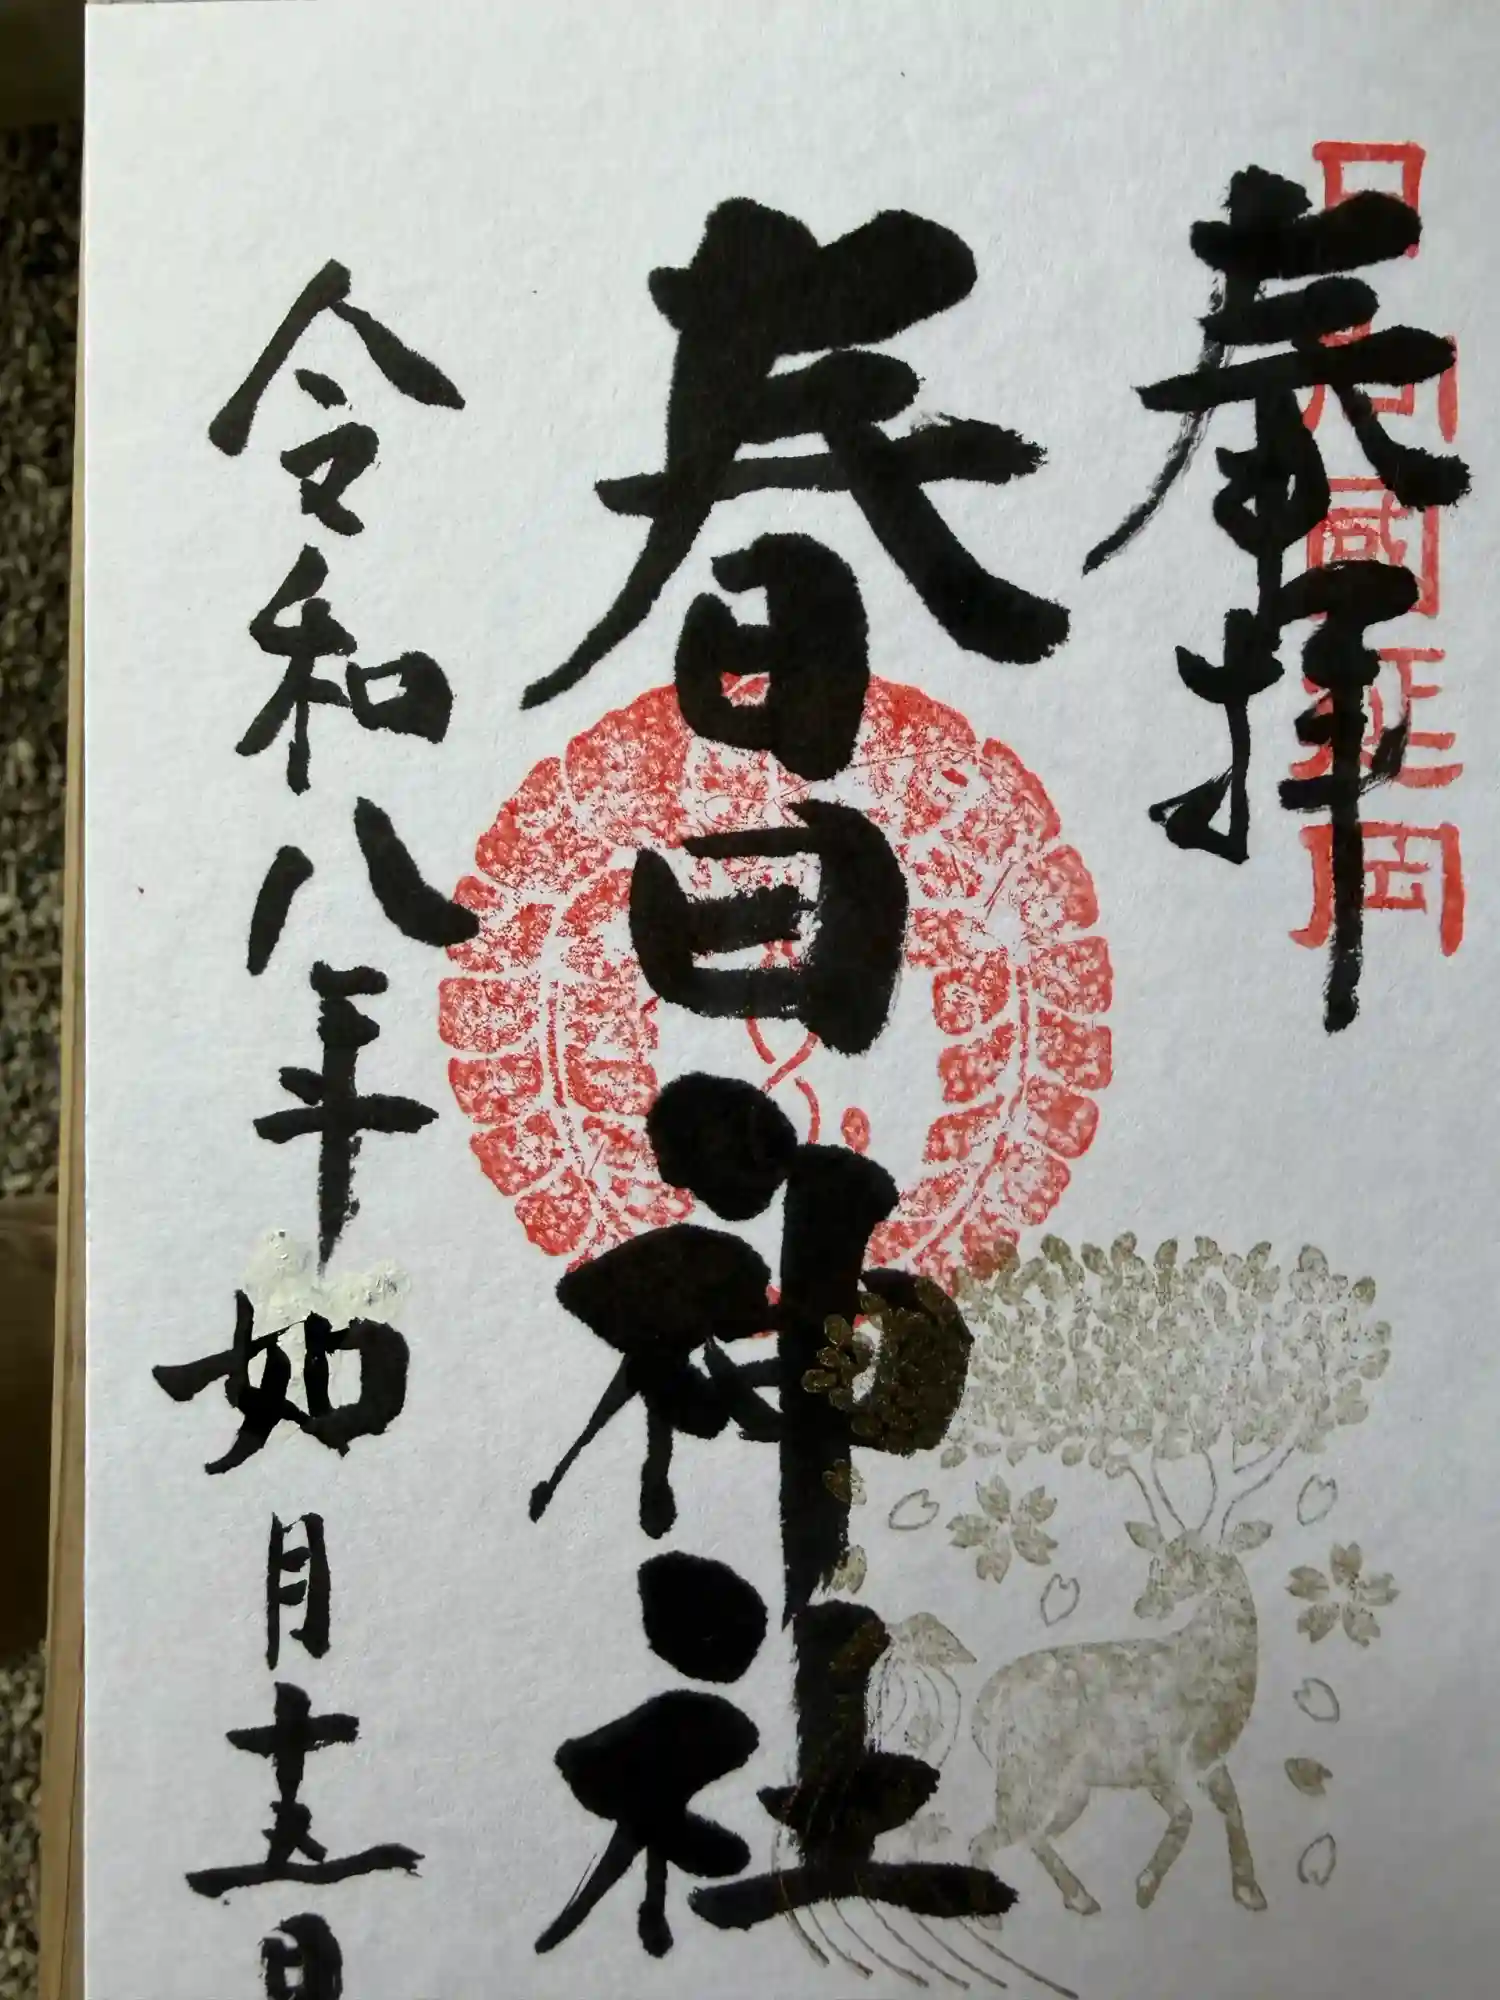 奉拝
日向國延岡
春日神社
令和八年如月十五日